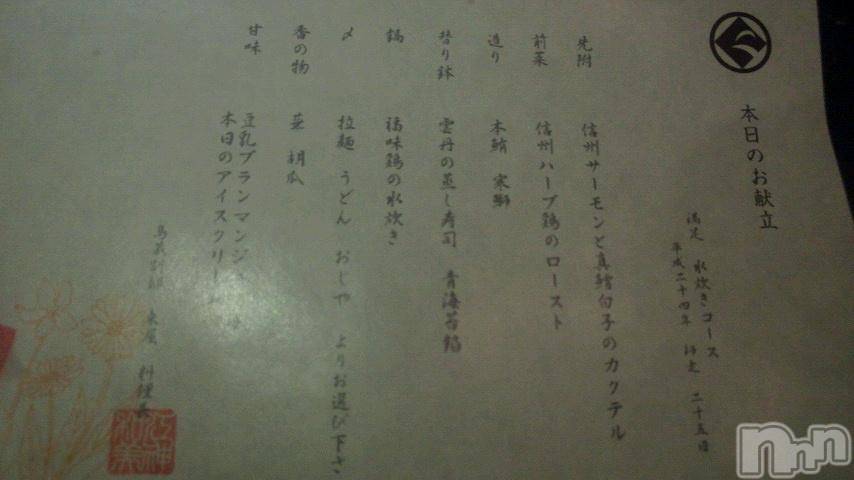 本日のお献立
満足 水炊きコース
平成二十四年 師走 二十五日
先附 信州サーモンと真鱈白子のカクテル
前菜 信州ハーブ鶏のロースト
造り 本鮪 寒鰤
替り鉢 雲丹の蒸し寿司 青海苔餡
鍋 福味鶏の水炊き
〆 拉麺 うどん おじや よりお選び下さ
香の物 蕪 胡瓜
甘味 豆乳ブランマンジェ
本日のアイスクリーム
料理長
nnn